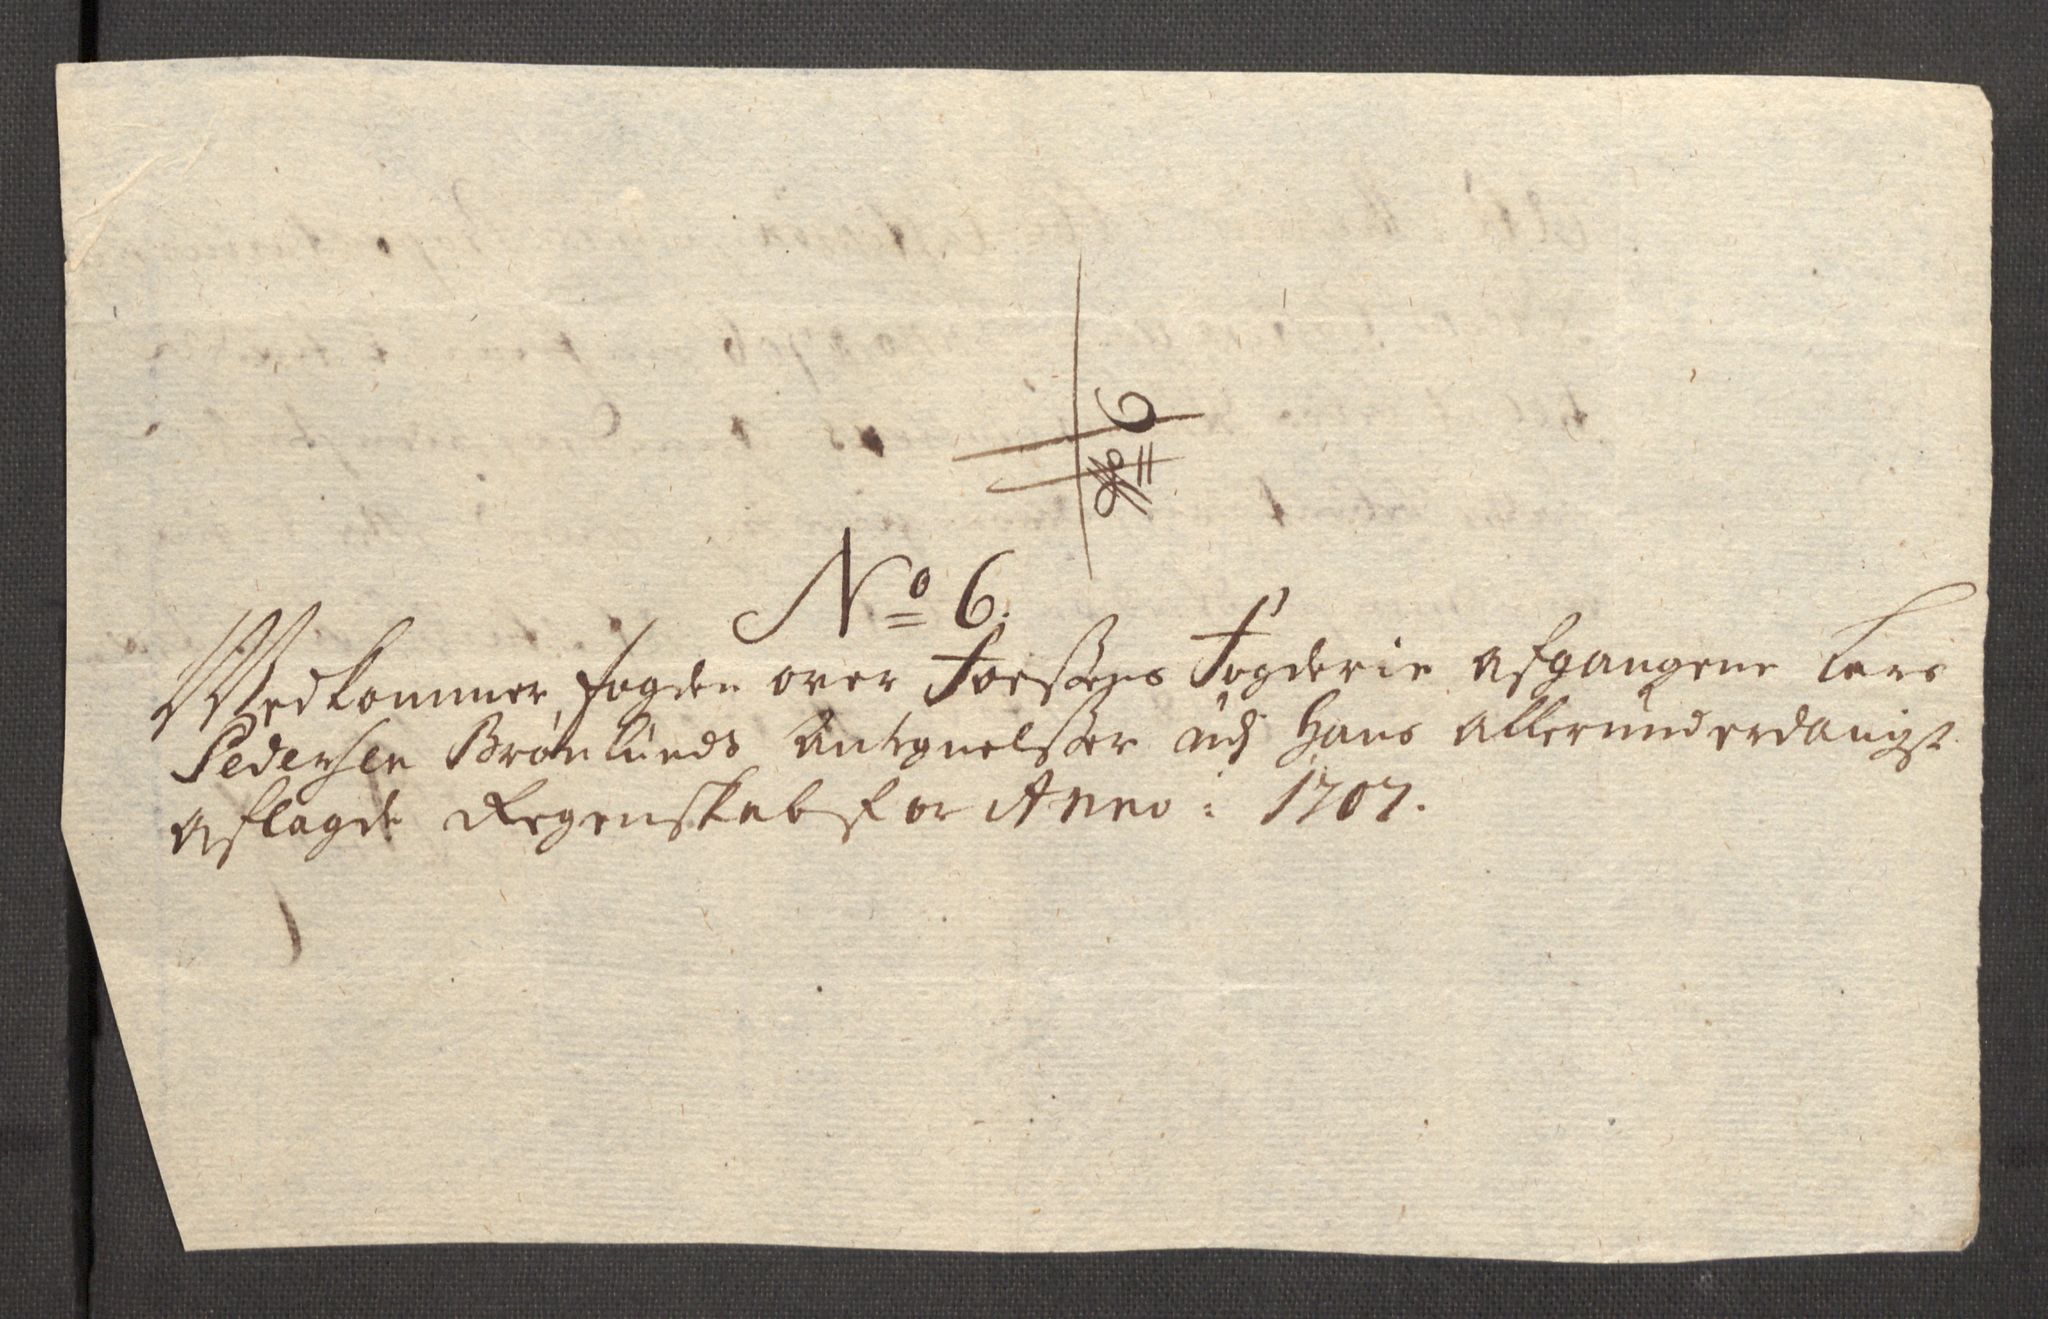 No 6
No 6.
Vedkommer, fogden over Foessens Fogderie afgangene Lars
Pedersen Brønlunds Antegnelsser udj Hans Allerunderdanigst
aflagde Regenskab for Anno: 1707.